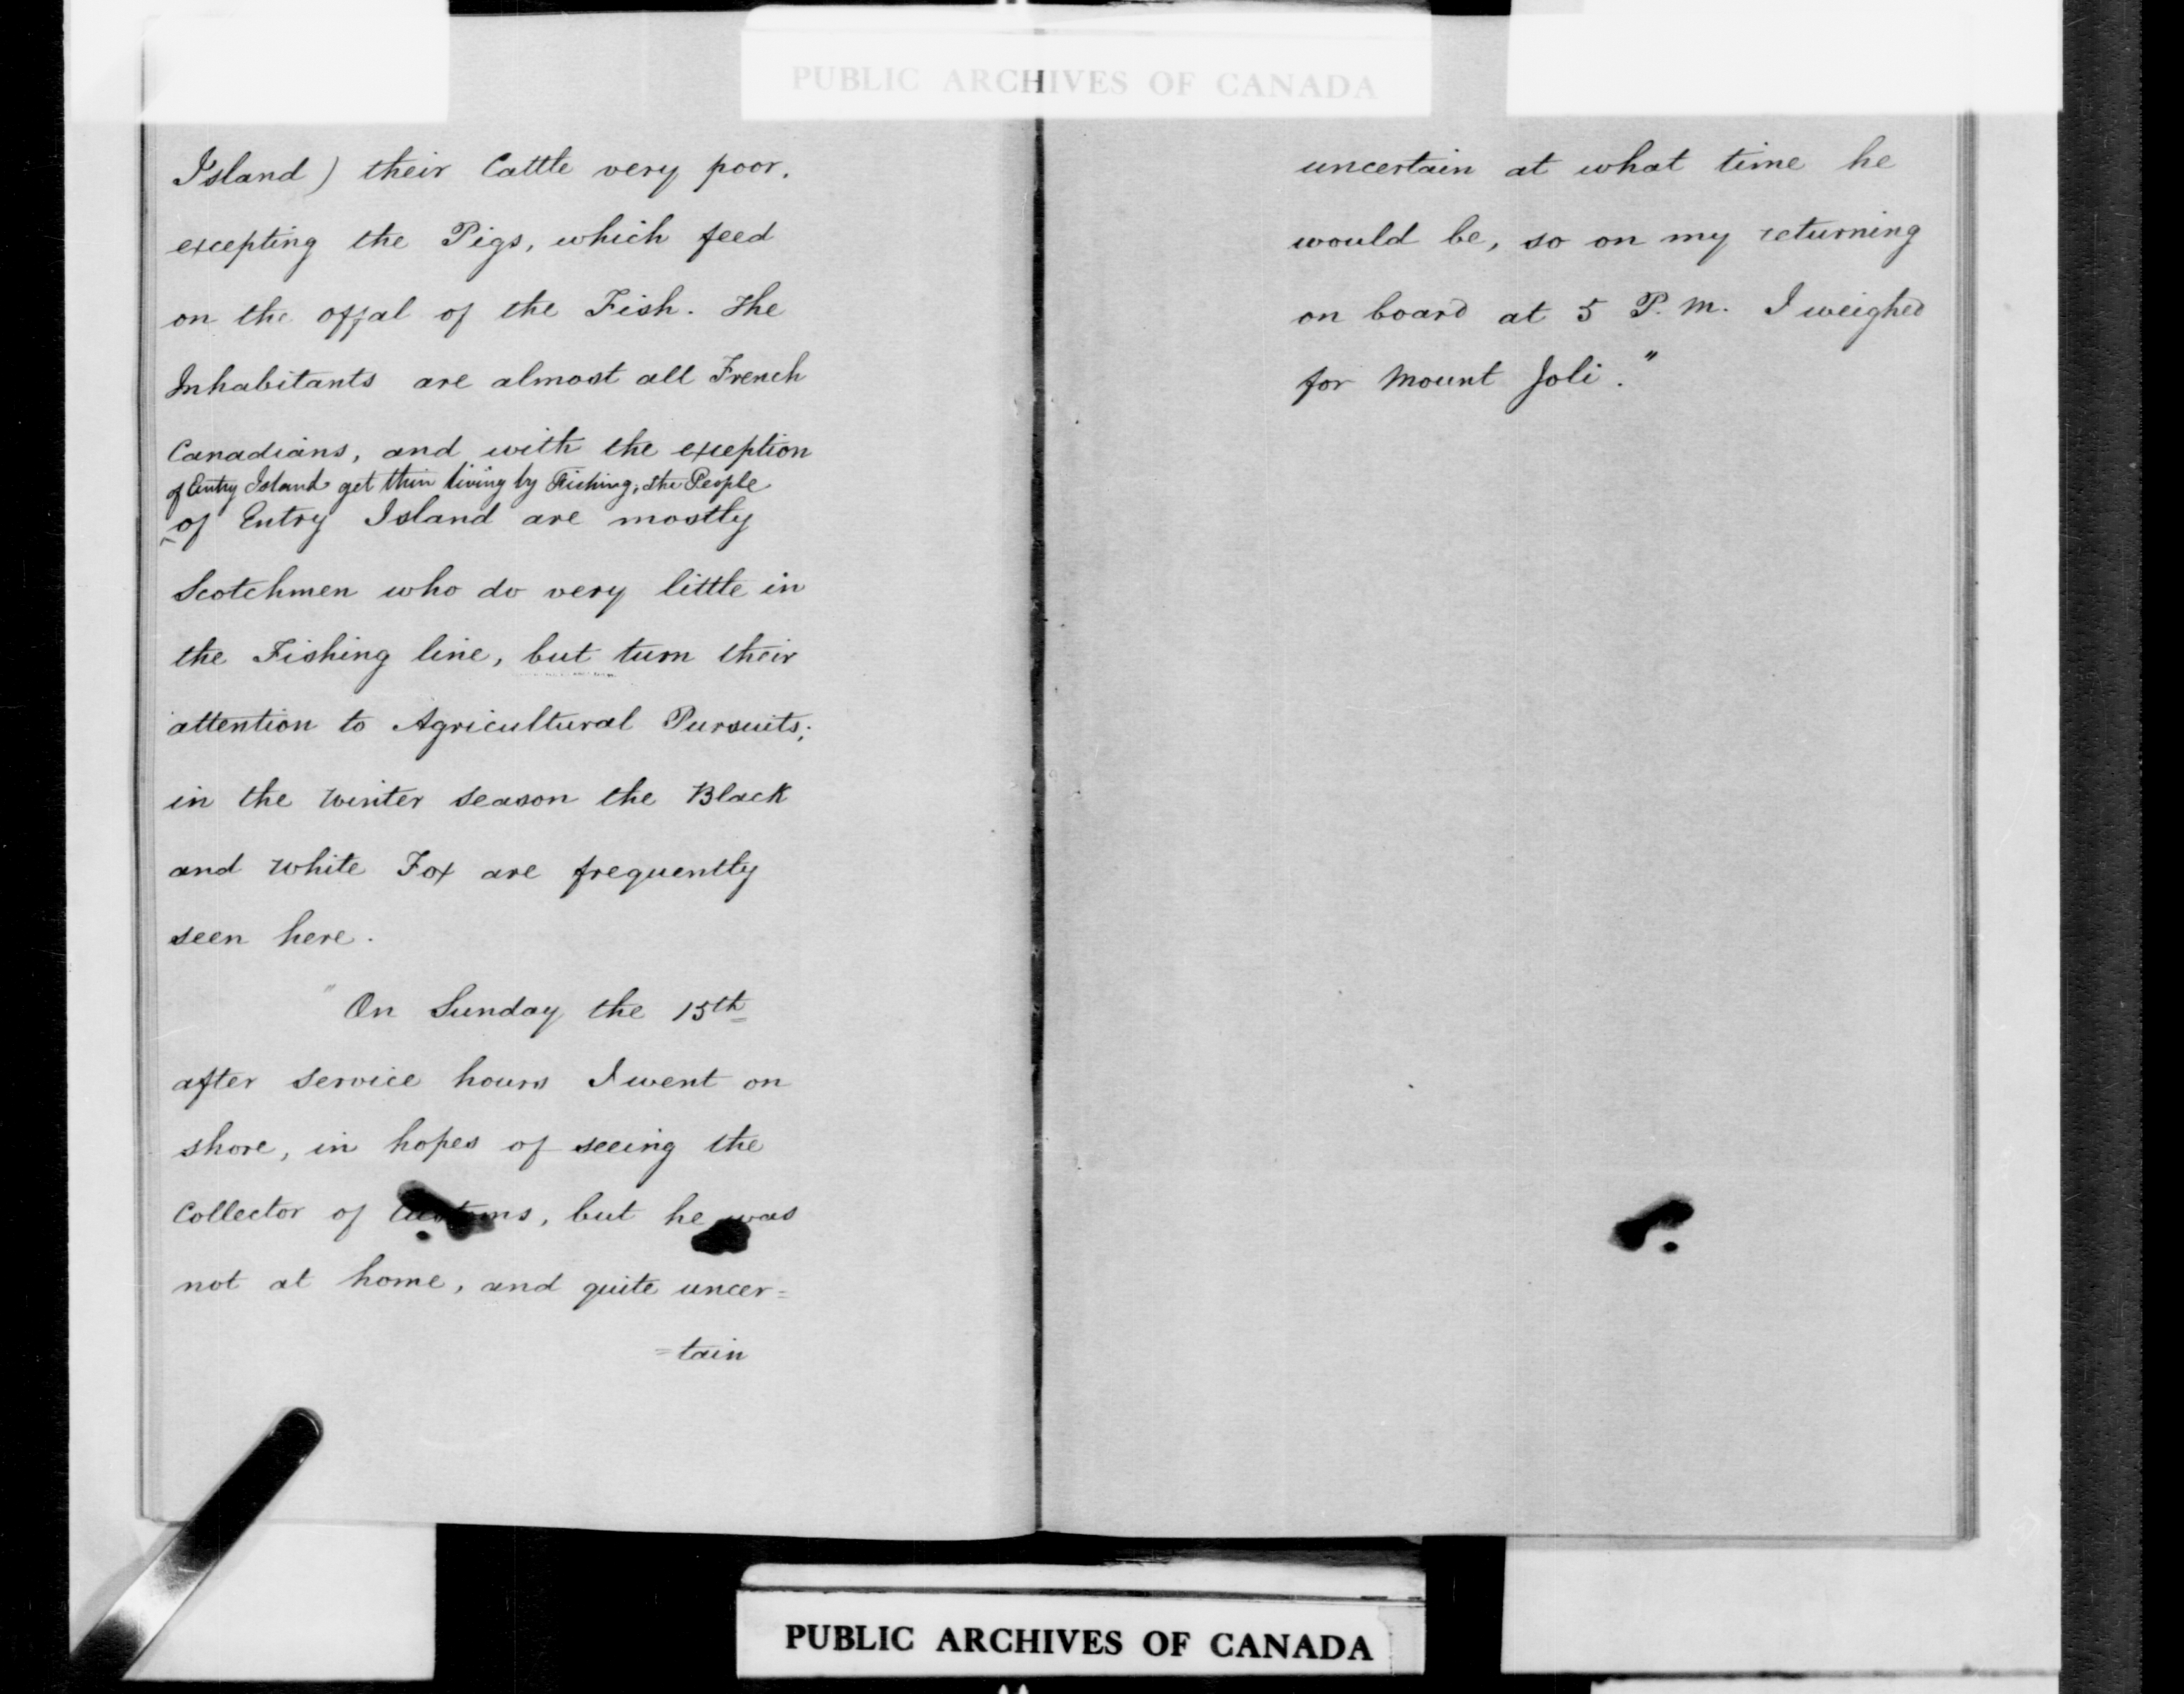 PUBLIC ARCHIVES OF CANADA
Island) their Cattle very poor,
excepting the Pigs, which feed
on the offal of the Fish. The
Inhabitants are almost all French
Canadians, and with the exception
of Entry Island get thin living by Fishing; the People
^of Entry Island are mostly
Scotchmen who do very little in
the Fishing line, but turn their
attention to Agricultural Pursuits;
in the Winter season the Black
and White Fox are frequently
seen here.
"On Sunday the 15th
after service hours I went on
shore, in hopes of seeing the
Collector of Customs, but he was
not at home, and quite uncer=
=tain
uncertain at what time he
would be, so on my returning
on board at 5 P.M. I weighed
for Mount Joli."
PUBLIC ARCHIVES OF CANADA